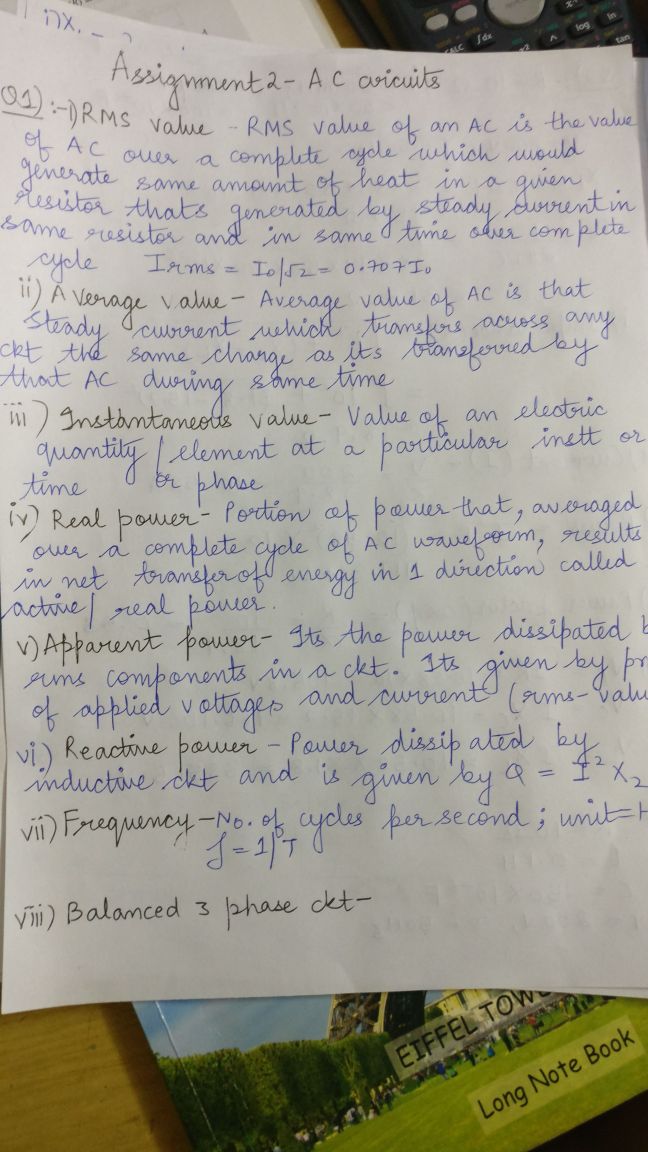 CALC ∫dx
log ln
tan
Assignment 2 - AC circuits
Q1) :- i) RMS value - RMS value of an AC is the value
of AC over a complete cycle which would
generate same amount of heat in a given
resistor thats generated by steady current in
same resistor and in same time over complete
cycle Irms = I₀/√2 = 0.707I₀
ii) Average value - Average value of AC is that
steady current which transfers across any
ckt the same charge as its transferred by
that AC during same time
iii) Instantaneous value - Value of an electric
quantity / element at a particular instt or
time or phase
iv) Real power - Portion of power that, averaged
over a complete cycle of AC waveform, results
in net transfer of energy in 1 direction called
active / real power.
v) Apparent power - Its the power dissipated
rms components in a ckt. Its given by
of applied voltages and current (rms-
vi) Reactive power - Power dissipated by
inductive ckt and is given by Q = I² X₂
vii) Frequency - No. of cycles per second ; unit =
f = 1/T
viii) Balanced 3 phase ckt -
EIFFEL
Long Note Book